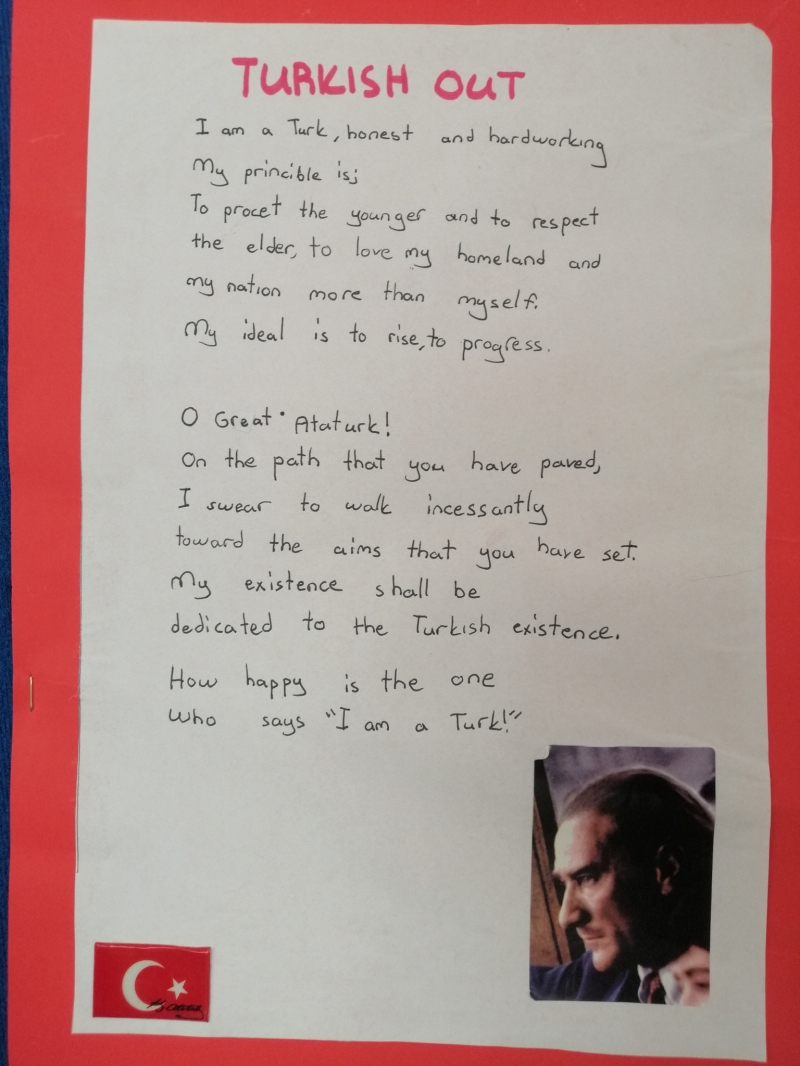 TURKISH OUT
I am a Turk, honest and hardworking
My princible is;
To procet the younger and to respect
the elder, to love my homeland and
my nation more than myself.
My ideal is to rise, to progress.
O Great Ataturk!
On the path that you have paved,
I swear to walk incessantly
toward the aims that you have set.
My existence shall be
dedicated to the Turkish existence.
How happy is the one
who says "I am a Turk!"